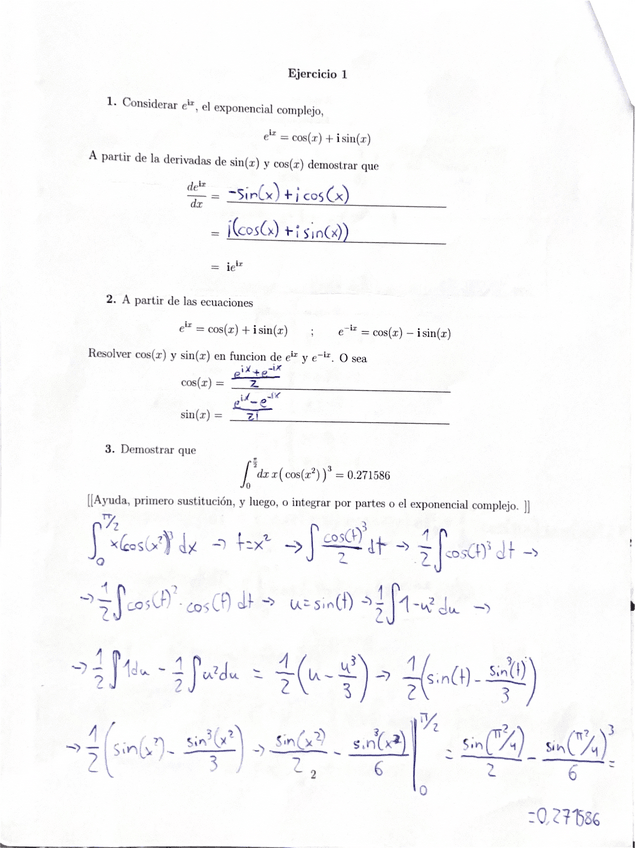 Ejercicio 1
1. Considerar e^{ix}, el exponencial complejo,
e^{ix} = cos(x) + i sin(x)
A partir de la derivadas de sin(x) y cos(x) demostrar que
de^{ix}/dx = -sin(x) + i cos(x)
= i(cos(x) + i sin(x))
= ie^{ix}
2. A partir de las ecuaciones
e^{ix} = cos(x) + i sin(x) ; e^{-ix} = cos(x) − i sin(x)
Resolver cos(x) y sin(x) en funcion de e^{ix} y e^{-ix}. O sea
cos(x) = (e^{ix} + e^{-ix})/2
sin(x) = (e^{ix} - e^{-ix})/2i
3. Demostrar que
∫_0^{π/2} dx x(cos(x²))³ = 0.271586
[[Ayuda, primero sustitución, y luego, o integrar por partes o el exponencial complejo. ]]
∫_0^{π/2} x(cos(x²))³ dx → t=x² → ∫ cos(t)³/2 dt → 1/2 ∫cos(t)³ dt →
→ 1/2 ∫cos(t)² · cos(t) dt → u=sin(t) → 1/2 ∫1-u² du →
→ 1/2 ∫1du - 1/2 ∫u²du = 1/2 (u - u³/3) → 1/2 (sin(t) - sin³(t)/3)
→ 1/2 (sin(x²) - sin³(x²)/3) → sin(x²)/2 - sin³(x²)/6 |_0^{π/2} = sin(π²/4)/2 - sin(π²/4)³/6 =
2
=0,271586